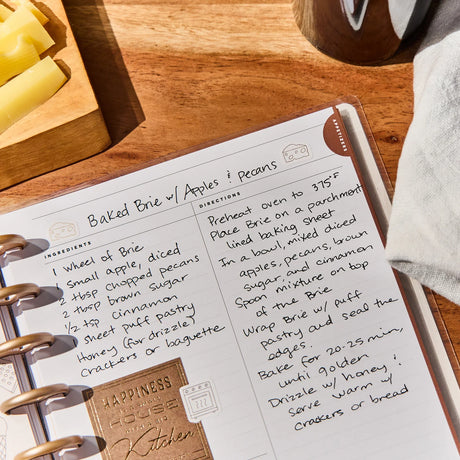 APPETIZERS
Baked Brie w/ Apples & pecans
INGREDIENTS
1 Wheel of Brie
1 small apple, diced
2 tbsp chopped pecans
2 tbsp brown sugar
1/2 tsp cinnamon
1 sheet puff pastry
Honey (for drizzle)
Crackers or baguette
DIRECTIONS
Preheat oven to 375°F
Place Brie on a parchment
lined baking sheet
In a bowl, mixed diced
apples, pecans, brown
sugar, and cinnamon
Spoon mixture on top
of the Brie
Wrap Brie w/ puff
pastry and seal the
edges.
Bake for 20-25 min,
until golden
Drizzle w/ honey &
serve warm w/
crackers or bread
HAPPINESS
HOUSE
Kitchen